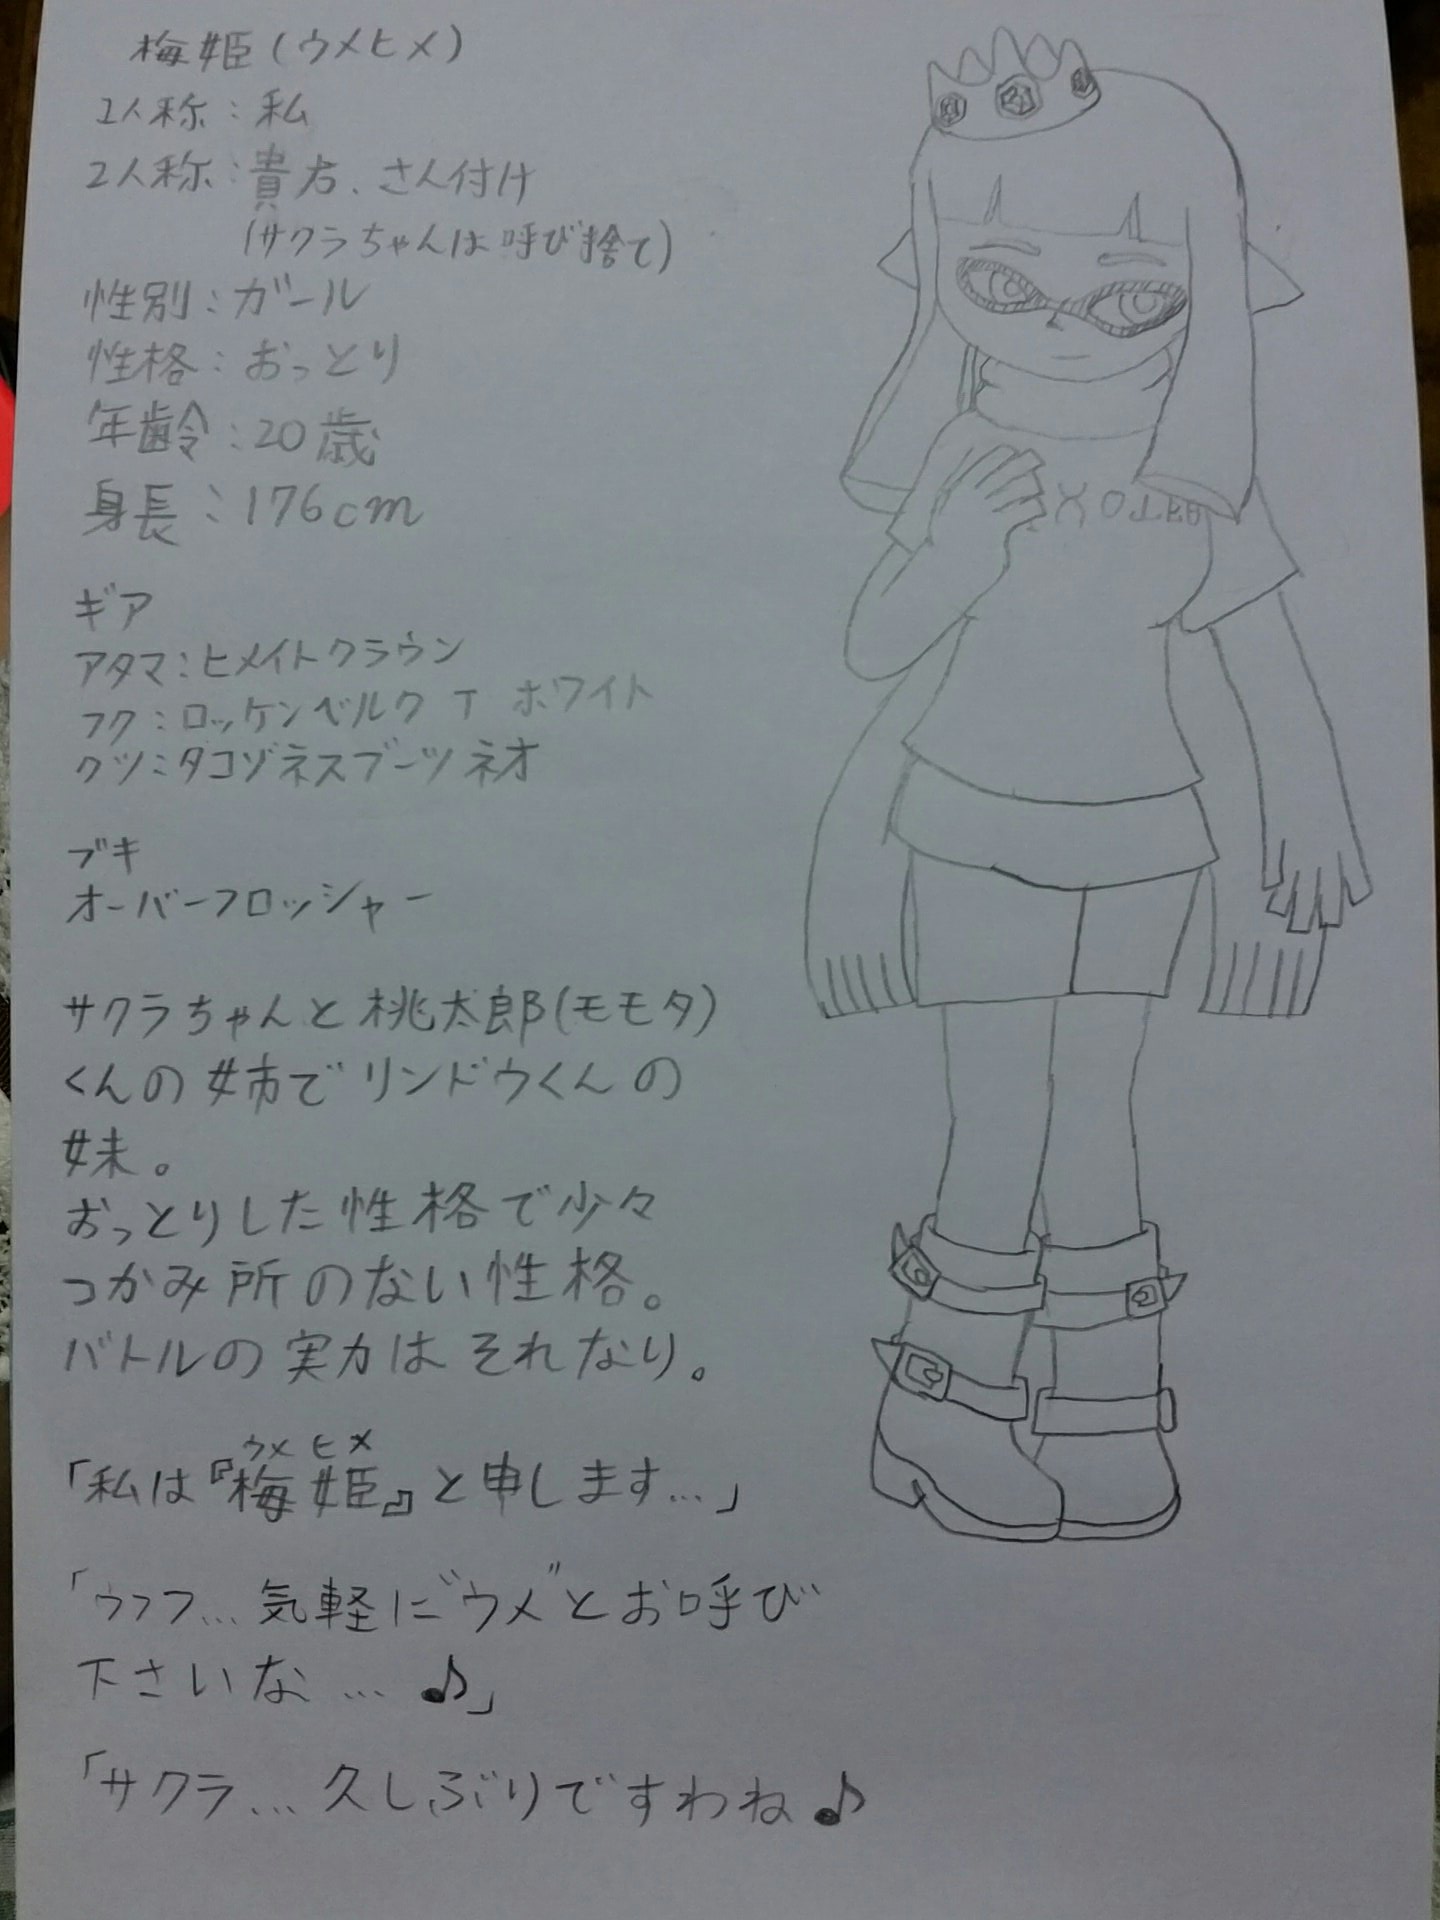 梅姫(ウメヒメ)
1人称:私
2人称:貴方、さん付け
(サクラちゃんは呼び捨て)
性別:ガール
性格:おっとり
年齢:20歳
身長:176cm
ギア
アタマ:ヒメイトクラウン
フク:ロッケンベルクT ホワイト
クツ:タコゾネスブーツ ネオ
ブキ
オーバーフロッシャー
サクラちゃんと桃太郎(モモタ)
くんの姉でリンドウくんの
妹。
おっとりした性格で少々
つかみ所のない性格。
バトルの実力はそれなり。
ウメヒメ
「私は『梅姫』と申します…」
「ウフフ…気軽に"ウメ"とお呼び
下さいな…♪」
「サクラ…久しぶりですわね♪